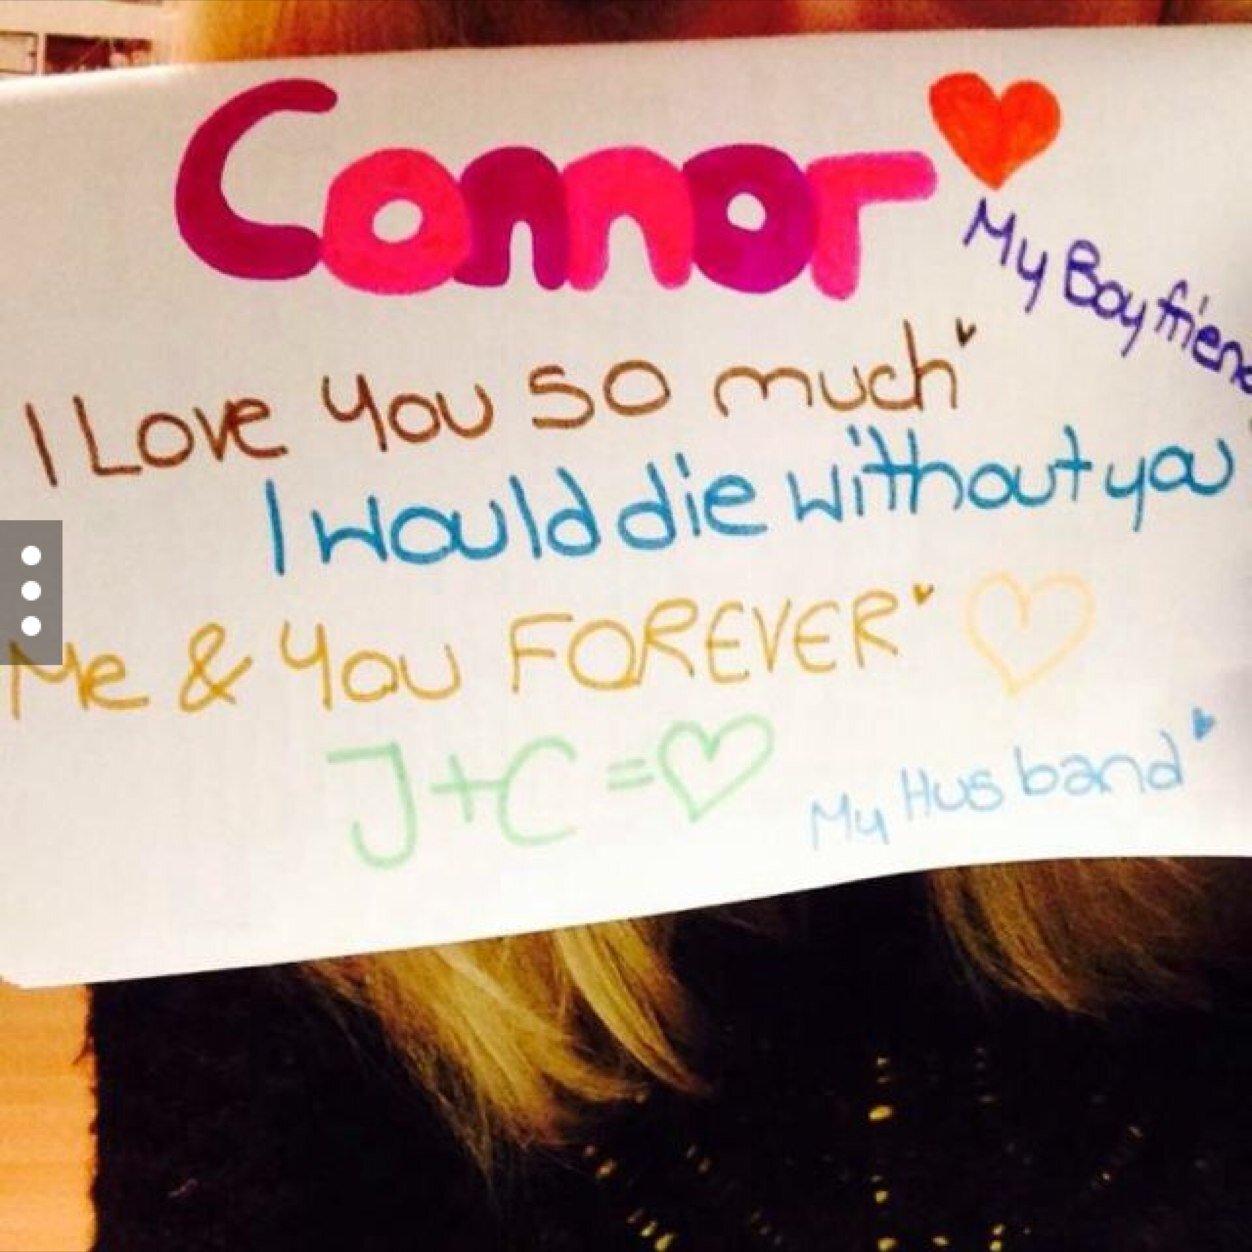 Connor
My Boyfriend
I Love You so much
I would die without you
Me & You FOREVER
J+C=
My Husband